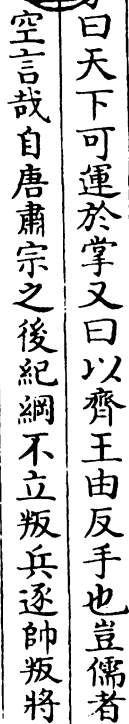 曰天下可運於掌又曰以齊王由反手也豈儒者
空言哉自唐肅宗之後紀綱不立叛兵逐帥叛將